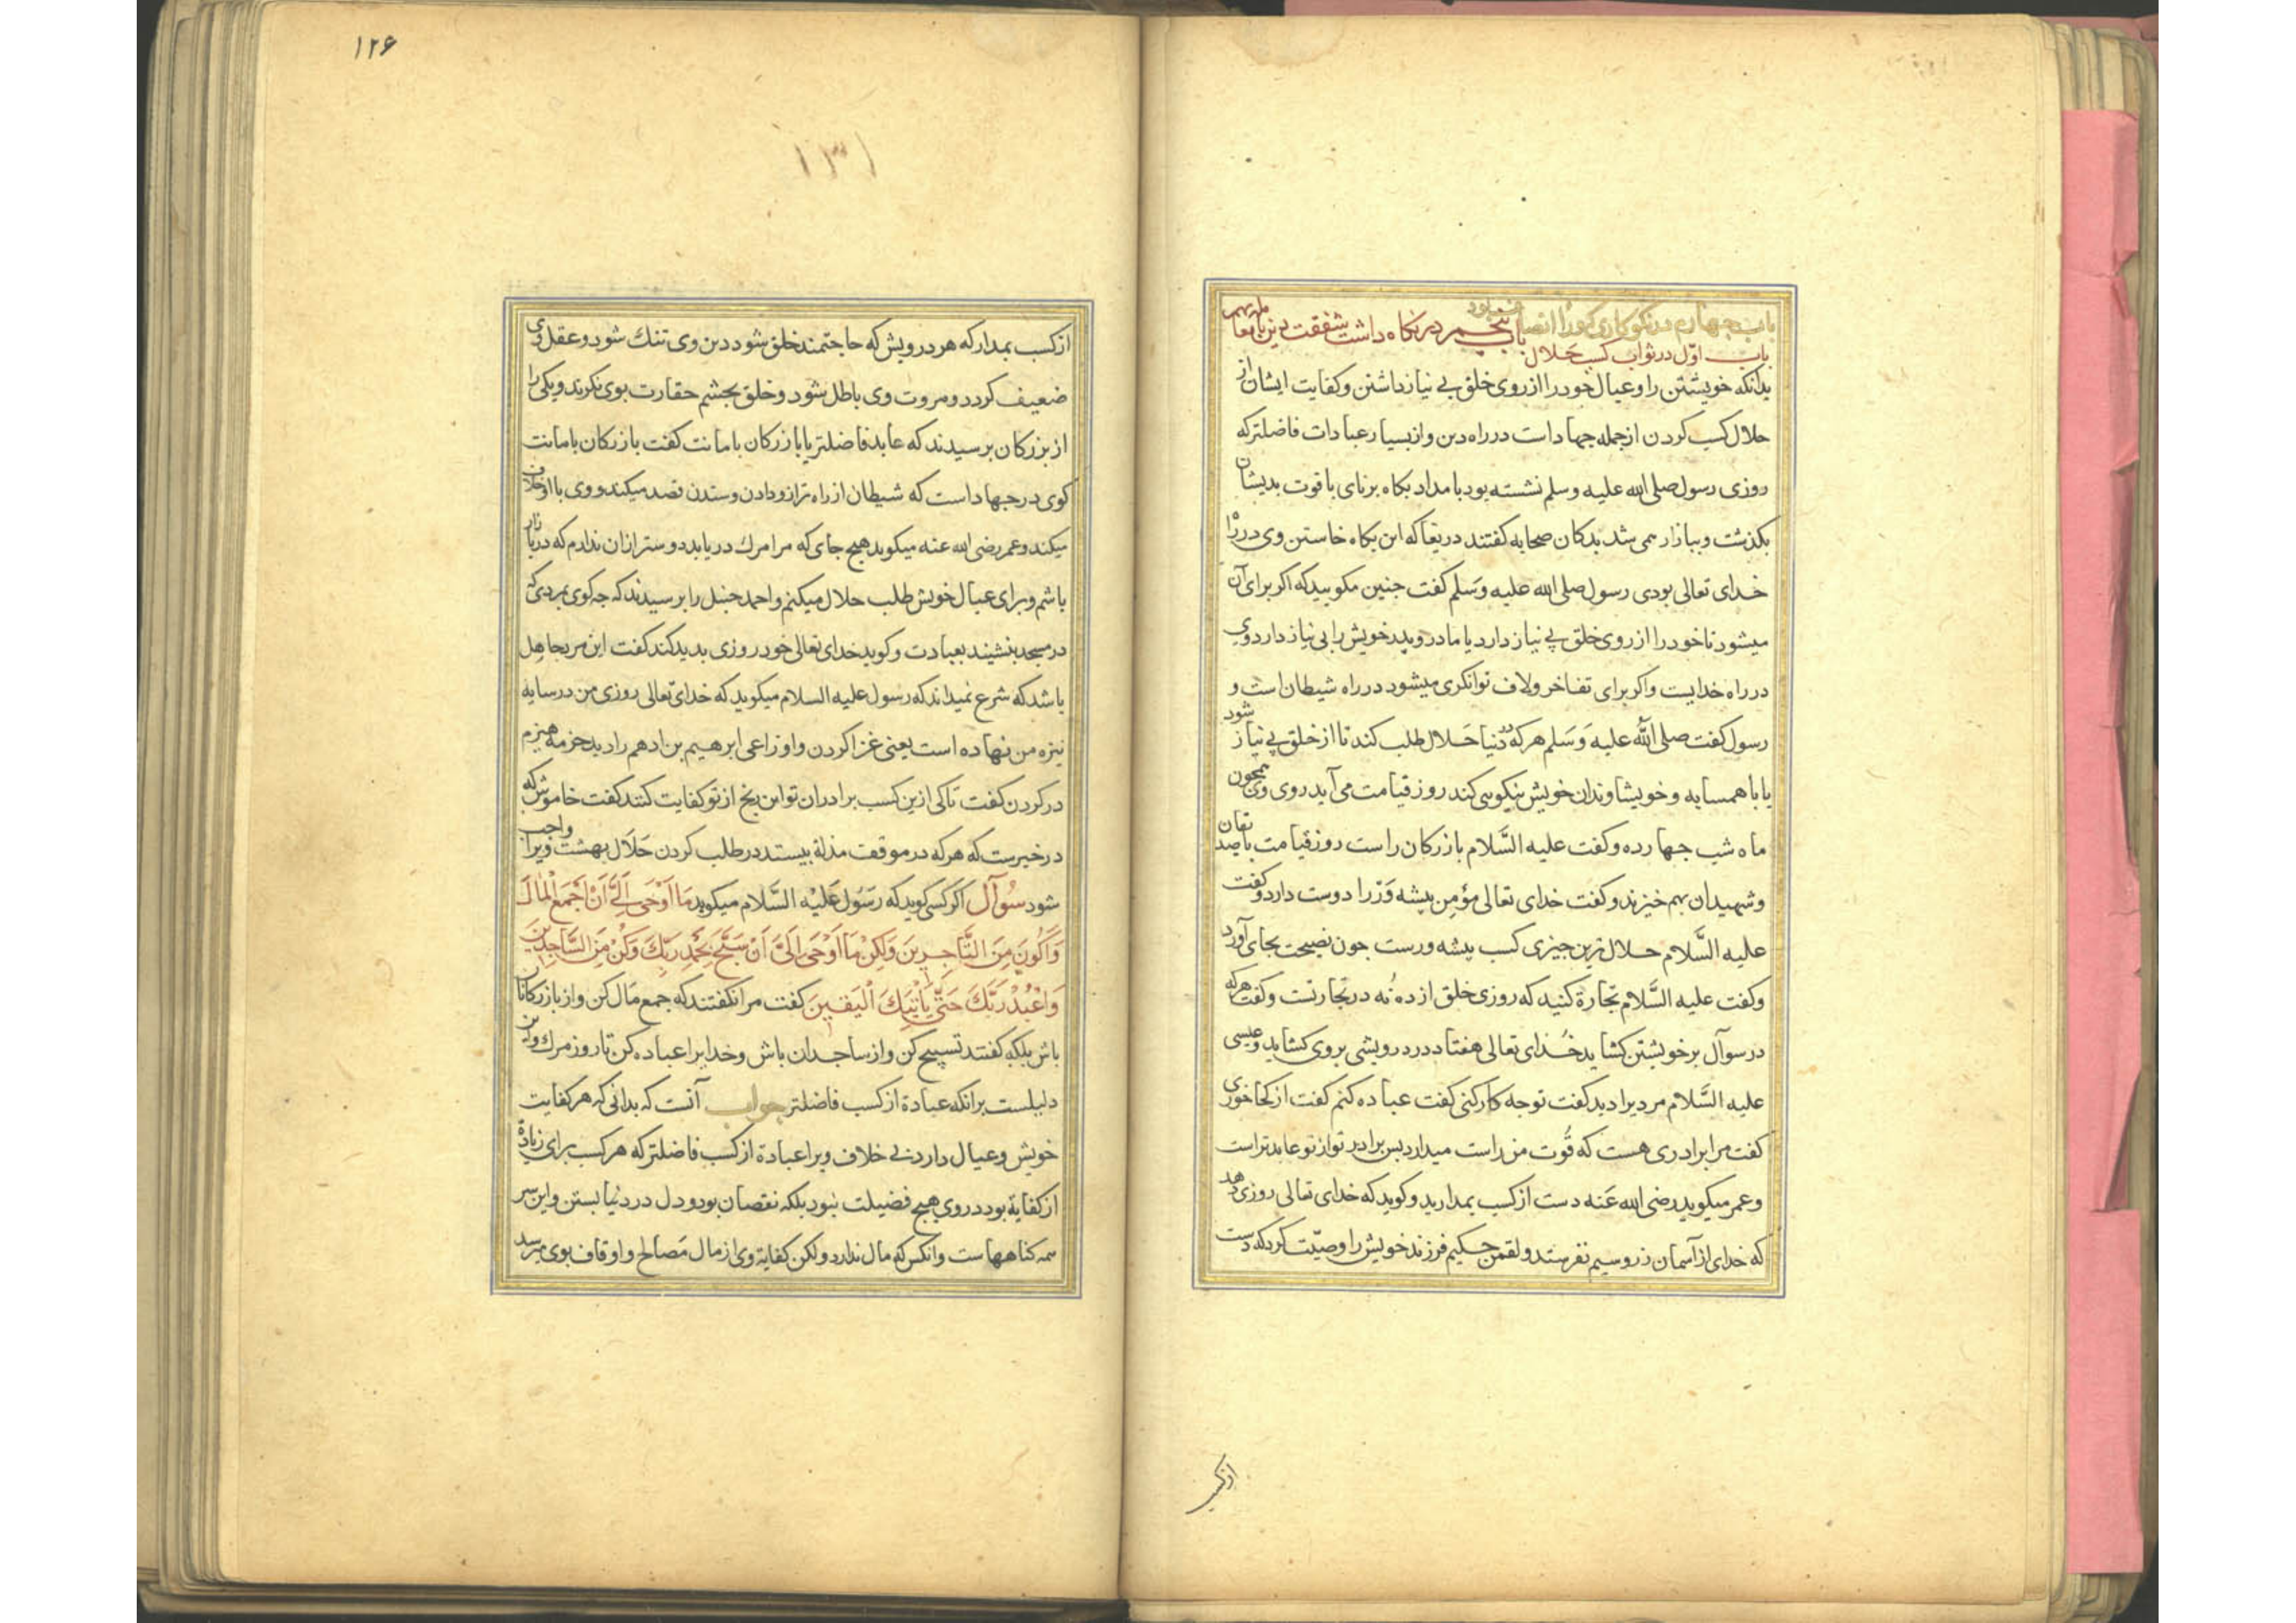 باب چهارم در نیکوکاری کورا انصاف بود
باب پنجم در نکاه داشت شفقت دین با معاملت بهم
باب اول در ثواب کسب حلال
بدانکه خویشتن را و عیال خود را از روی خلق بی نیاز داشتن و کفایت ایشان از
حلال کسب کردن از جمله جهاد است در راه دین و از بسیار عبادات فاضلتر که
روزی رسول صلی الله علیه وسلم نشسته بود بامداد بکاه برنای باقوت بدیشان
بکذشت و ببازار می شد بدکان صحابه کفتند دریغا که این بکاه خاستن وی در راه
خدای تعالی بودی رسول صلی الله علیه وسلم کفت جنین مکویید که اکر برای آن
میشود تا خود را از روی خلق بی نیاز دارد یا مادر و پدر خویش را بی نیاز دارد وی
در راه خدایست و اکر برای تفاخر و لاف توانکری میشود در راه شیطان است و
رسول کفت صلی الله علیه وسلم هر که دنیا حلال طلب کند تا از خلق بی نیاز شود
یا با همسایه و خویشاوندان خویش نیکویی کند روز قیامت می آید روی وی همجون
ماه شب جهارده و کفت علیه السلام بازرکان راست روز قیامت با صدیقان
و شهیدان بهم خیزند و کفت خدای تعالی مؤمن پیشه ور را دوست دارد و کفت
علیه السلام حلال ترین جیزی کسب پیشه ورست جون نصیحت بجای آورد
و کفت علیه السلام تجارة کنید که روزی خلق از ده نه در تجارتست و کفت هر که
در سوآل بر خویشتن کشاید خدای تعالی هفتاد در درویشی بر وی کشاید و عیسی
علیه السلام مردیرا دید کفت تو جه کار کنی کفت عباده کنم کفت از کجا خوری
کفت مرا برادری هست که قوت من راست میدارد بس برادر تو از تو عابدتر است
و عمر میکوید رضی الله عنه دست از کسب بمدارید و کوید که خدای تعالی روزی دهد
که خدای از آسمان زر و سیم نفرستد و لقمن حکیم فرزند خویش را وصیت کرد که دست
از کسب
۱۲۶
۱۳۱
از کسب بمدار که هر درویش که حاجتمند خلق شود دین وی تنک شود و عقل وی
ضعیف کردد و مروت وی باطل شود و خلق بجشم حقارت بوی نکرند و یکی را
از بزرکان برسیدند که عابد فاضلتر یا بازرکان بامانت کفت بازرکان بامانت
کوی در جهاد است که شیطان از راه ترازو و دادن و ستدن قصد میکند و وی با او خلاف
میکند و عمر رضی الله عنه میکوید هیج جای که مرا مرک دریابد دوستر از ان ندارم که در بازار
باشم و برای عیال خویش طلب حلال میکنم و احمد حنبل را برسیدند که جه کوی بمردی که
در مسجد بنشیند بعبادت و کوید خدای تعالی خود روزی بدید کند کفت این مر بجاهل
باشد که شرع نمیداند که رسول علیه السلام میکوید که خدای تعالی روزی من در سایه
نیزه من نهاده است یعنی غزا کردن و اوزاعی ابرهیم بن ادهم را دید حزمه هیزم
در کردن کفت تا کی ازین کسب برادران تو این رنج از تو کفایت کنند کفت خاموش که
در خبرست که هر که در موقفت مذلة بیستد در طلب کردن حلال بهشت ویرا واجب
شود سوآل اکر کسی کوید که رسول علیه السلام میکوید ما اوحی الی ان اجمع المال
واکون من التاجرین ولکن ما اوحی الی ان سبح بحمد ربك وکن من الساجدین
واعبد ربك حتی یاتیك الیقین کفت مرا نکفتند که جمع مال کن و از بازرکانان
باش بلکه کفتند تسبیح کن و از ساجدان باش و خدایرا عباده کن تا روز مرك و این
دلیلست برانکه عبادة از کسب فاضلتر جواب آنست که بدانی که هر کفایت
خویش و عیال دارد بی خلاف ویرا عبادة از کسب فاضلتر که هر کسب برای زیادة
از کفایة بود در وی هیج فضیلت نبود بلکه نقصان بود و دل در دنیا بستن و این سر
همه کناهها ست و انکس که مال ندارد ولکن کفایة وی از مال مصالح و اوقاف بوی میرسد